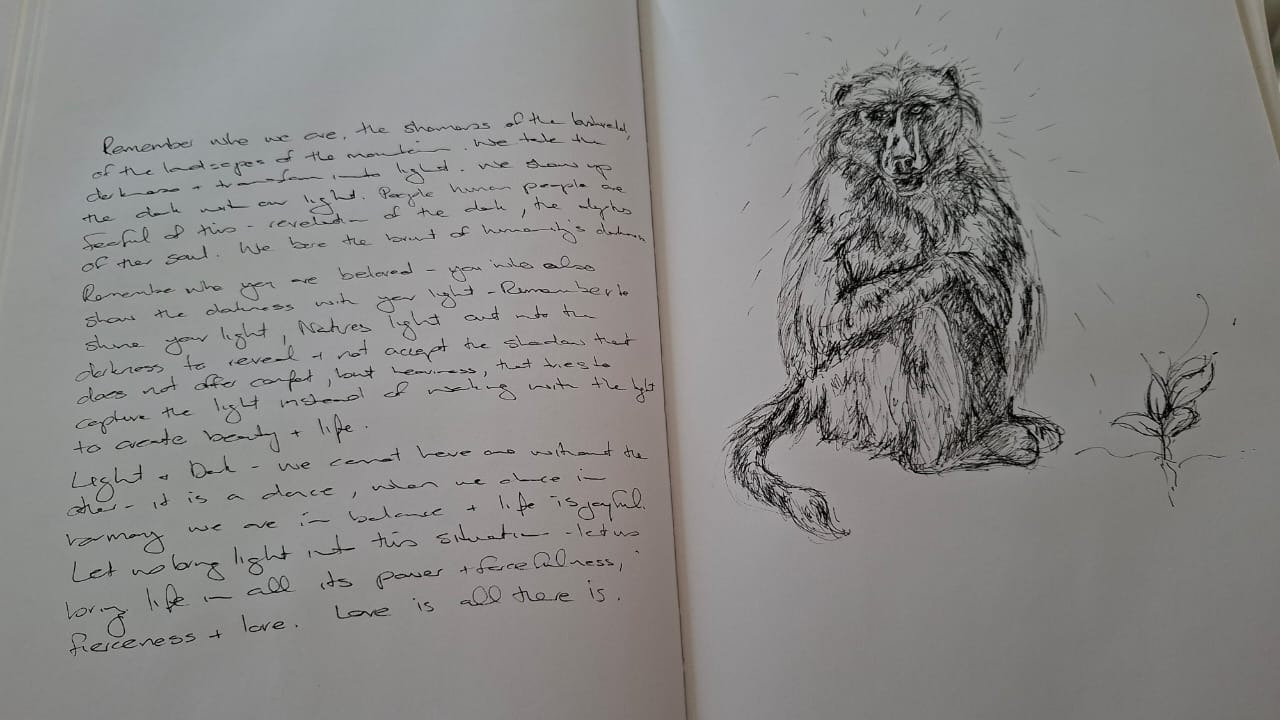 Remember who we are, the shamans of the bushveld,
of the landscapes of the mountain. We take the
darkness + transform into light. We show up
the dark with our light. People human people are
fearful of this - revelation of the dark, the depths
of their soul. We bere the brunt of humanity's darkness
Remember who you are beloved - you who also
show the darkness with your light - Remember to
shine your light, Natures light out into the
darkness to reveal + not accept the shadow that
does not offer comfort, but heaviness, that tries to
capture the light instead of working with the light
to create beauty + life.
Light + Dark - we cannot have one without the
other - it is a dance, when we dance in
harmony we are in balance + life is joyful.
Let us bring light into this situation - let us
bring life in all its power + forcefulness,
fierceness + love. Love is all there is.